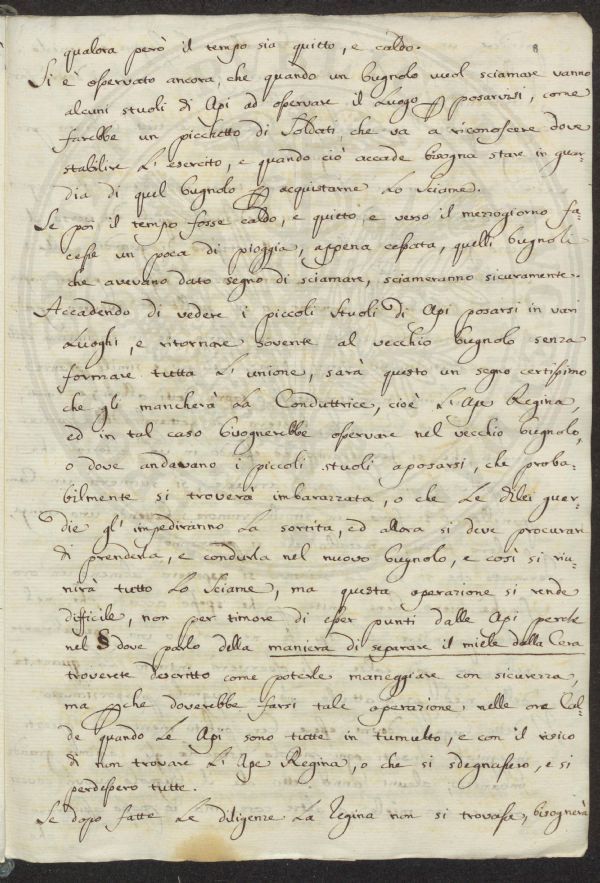 8
qualora però il tempo sia quieto, e caldo.
Si è osservato ancora, che quando un bugnolo vuol sciamare vanno
alcuni stuoli di Api ad osservare il Luogo p posarvisi, come
farebbe un picchetto di Soldati, che va a riconoscere dove
stabilire L'esercito, e quando ciò accade bisogna stare in guar-
dia di quel bugnolo p acquistarne Lo Sciame.
Se poi il tempo fosse caldo, e quieto, e verso il mezzogiorno fa-
cesse un poca di pioggia, appena cessata, quelli bugnoli
che avevano dato segno di sciamare, sciameranno sicuramente.
Accadendo di vedere i piccoli Stuoli di Api posarsi in vari
Luoghi, e ritornare sovente al vecchio bugnolo senza
formare tutta L'unione, sarà questo un segno certissimo
che gli mancherà La Conduttrice, cioè L'Ape Regina,
ed in tal caso bisognerebbe osservare nel vecchio bugnolo,
o dove andavano i piccoli stuoli aposarsi, che proba-
bilmente si troverà imbarazzata, o che Le dilei guar-
die gl'impediranno La sortita, ed allora si deve procurare
di prenderla, e condurla nel nuovo bugnolo, e così si riu-
nirà tutto Lo Sciame, ma questa operazione si rende
difficile, non per timore di esser punti dalle Api perche
nel § dove parlo della maniera di separare il miele dalla Cera
troverete descritto come poterle maneggiare con sicurezza,
ma pche doverebbe farsi tale operazione nelle ore Cal-
de quando Le Api sono tutte in tumulto, e con il risico
di non trovare L'Ape Regina, o che si sdegnassero, e si
perdessero tutte.
Se dopo fatte Le diligenze La Regina non si trovasse, bisognerà